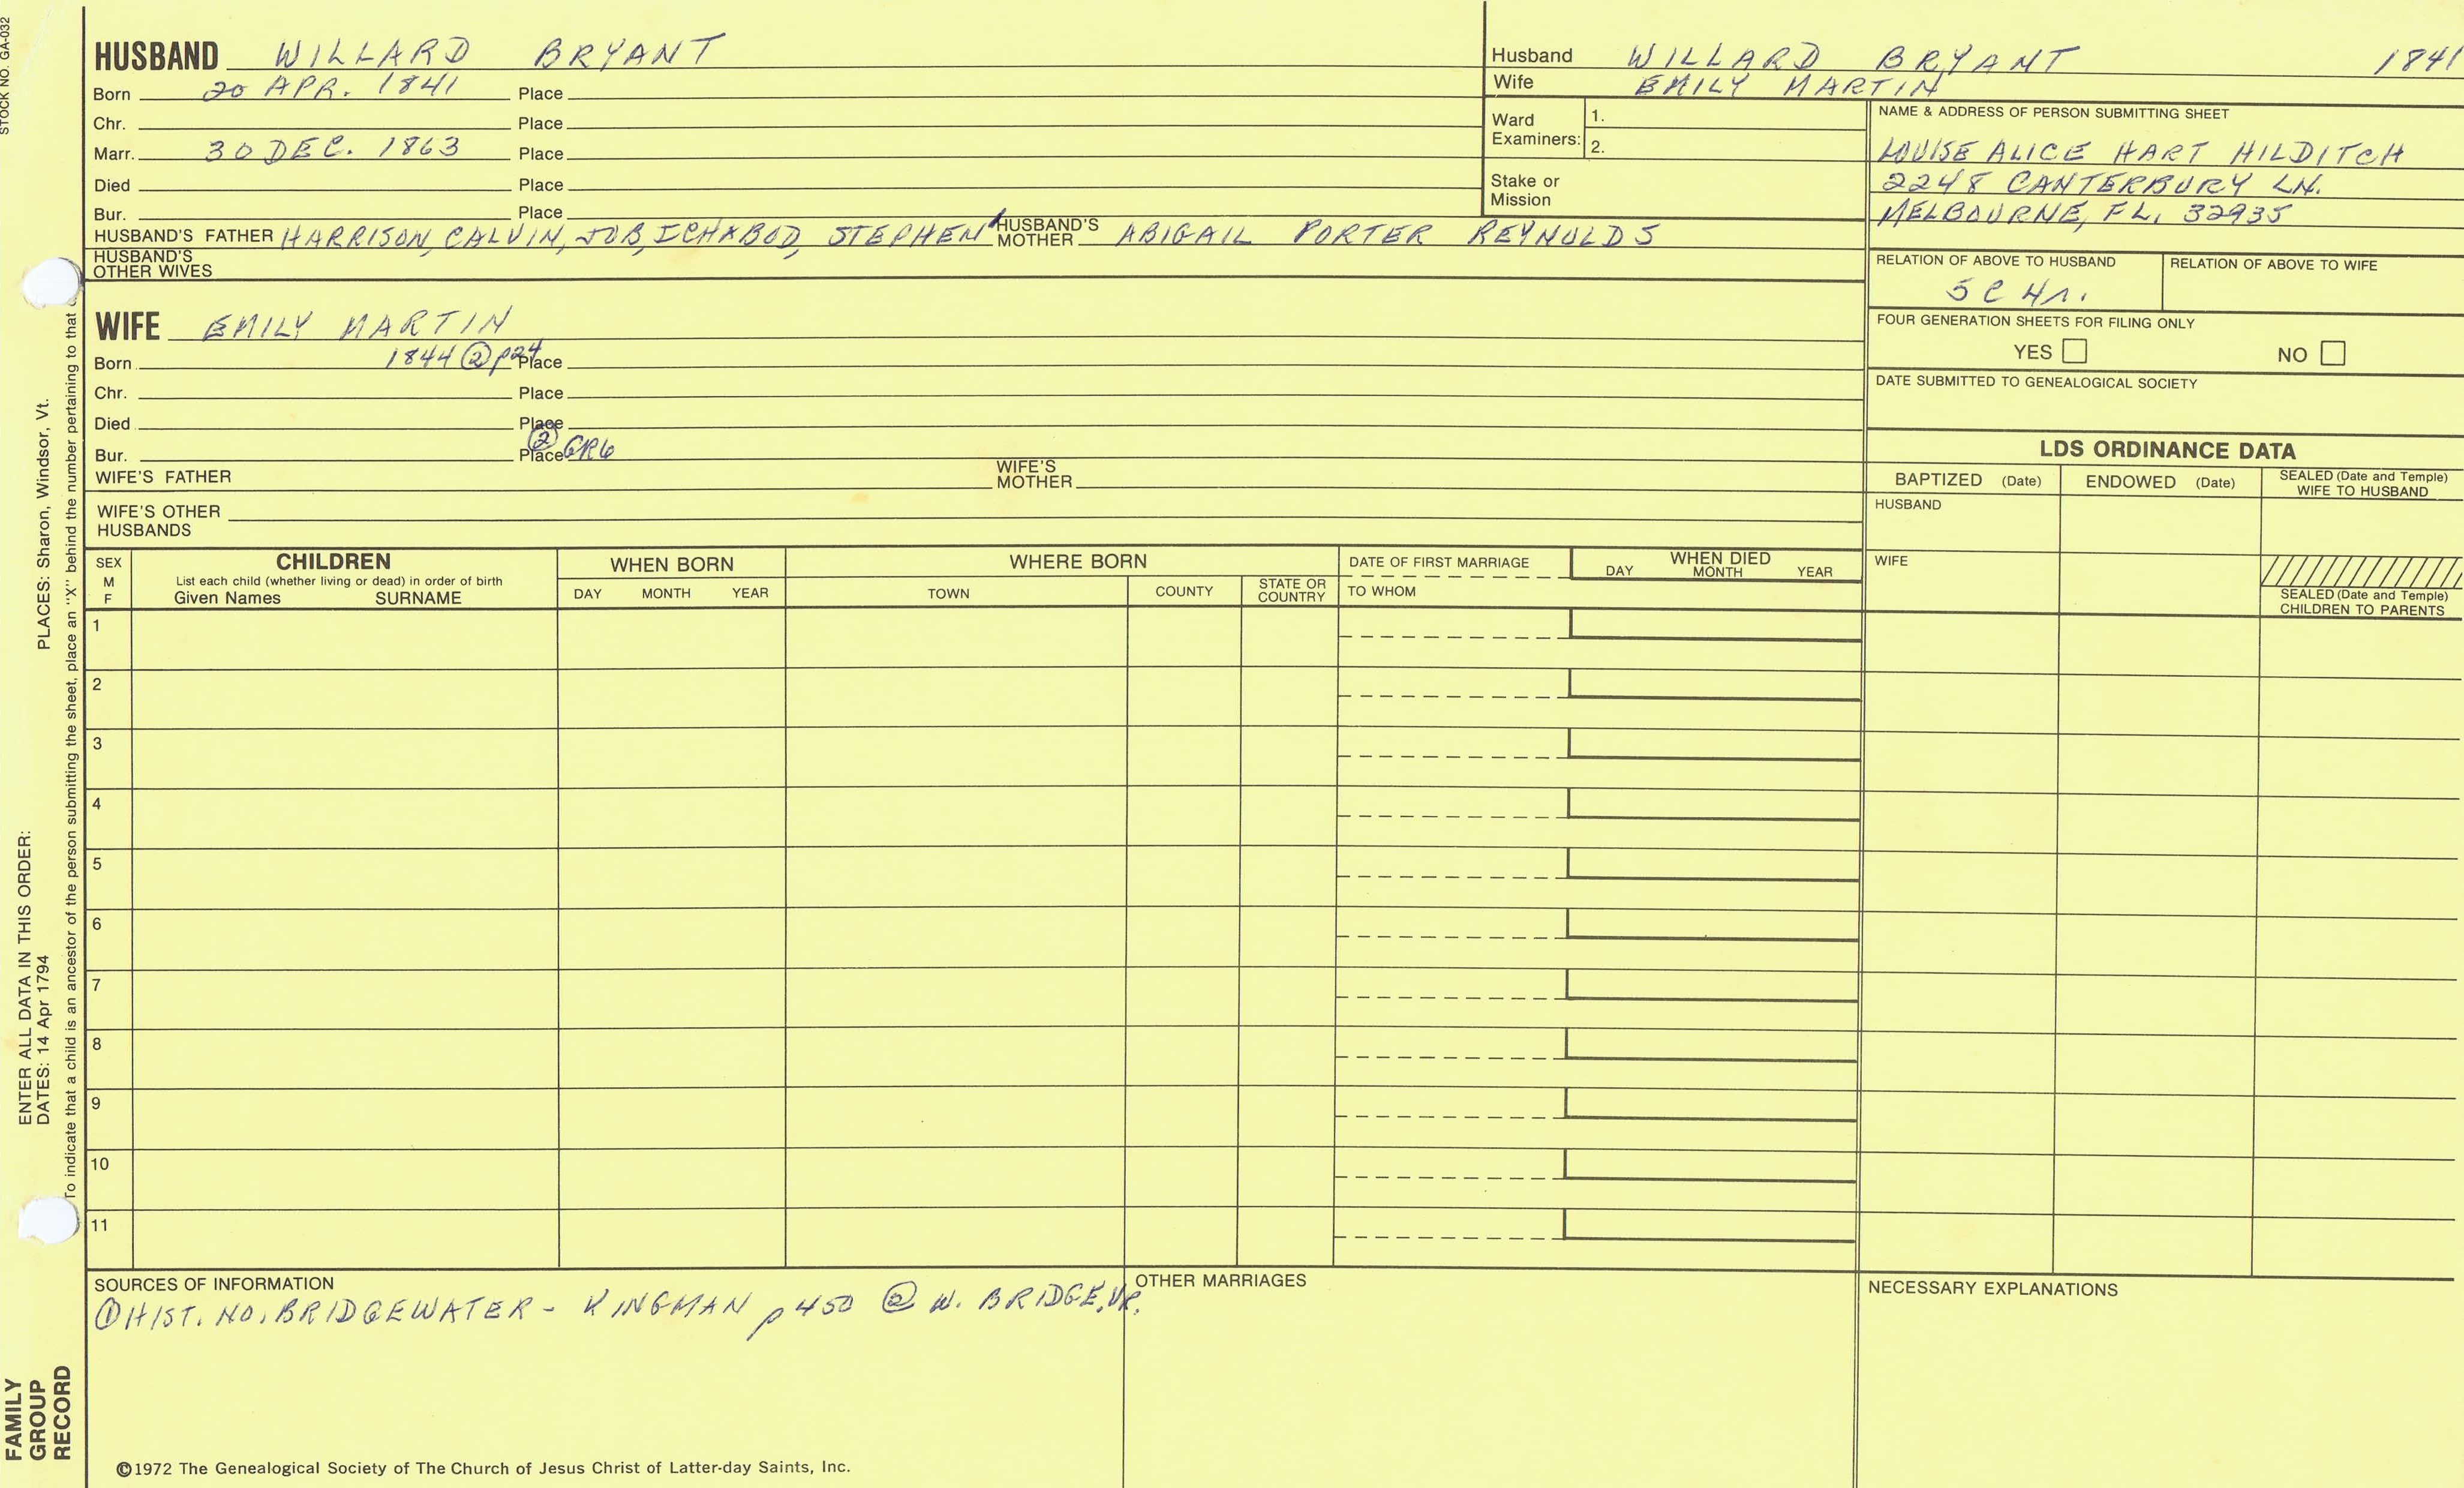 STOCK NO. GA-032
HUSBAND WILLARD BRYANT
Born 20 APR. 1841 Place
Chr. Place
Marr. 30 DEC. 1863 Place
Died Place
Bur. Place
HUSBAND'S FATHER HARRISON, CALVIN, JOB, ICHABOD, STEPHEN HUSBAND'S MOTHER ABIGAIL PORTER REYNOLDS
HUSBAND'S OTHER WIVES
WIFE EMILY MARTIN
Born 1844 ② p24 Place
Chr. Place
Died Place
Bur. Place ② GR6
WIFE'S FATHER WIFE'S MOTHER
WIFE'S OTHER HUSBANDS
Husband WILLARD BRYANT 1841
Wife EMILY MARTIN
Ward Examiners: 1.
2.
Stake or Mission
NAME & ADDRESS OF PERSON SUBMITTING SHEET
LOUISE ALICE HART HILDITCH
2248 CANTERBURY LN.
MELBOURNE, FL. 32935
RELATION OF ABOVE TO HUSBAND RELATION OF ABOVE TO WIFE
5C 4r.
FOUR GENERATION SHEETS FOR FILING ONLY
YES NO
DATE SUBMITTED TO GENEALOGICAL SOCIETY
LDS ORDINANCE DATA
BAPTIZED (Date) ENDOWED (Date) SEALED (Date and Temple) WIFE TO HUSBAND
HUSBAND
WIFE
SEALED (Date and Temple) CHILDREN TO PARENTS
SEX M F
CHILDREN
List each child (whether living or dead) in order of birth
Given Names SURNAME
WHEN BORN
DAY MONTH YEAR
WHERE BORN
TOWN COUNTY STATE OR COUNTRY
DATE OF FIRST MARRIAGE
TO WHOM
WHEN DIED
DAY MONTH YEAR
1
2
3
4
5
6
7
8
9
10
11
SOURCES OF INFORMATION
① HIST. NO. BRIDGEWATER - KINGMAN p 450 ② W. BRIDGE. VR.
OTHER MARRIAGES
NECESSARY EXPLANATIONS
©1972 The Genealogical Society of The Church of Jesus Christ of Latter-day Saints, Inc.
ENTER ALL DATA IN THIS ORDER:
DATES: 14 Apr 1794 PLACES: Sharon, Windsor, Vt.
To indicate that a child is an ancestor of the person submitting the sheet, place an "X" behind the number pertaining to that
FAMILY
GROUP
RECORD